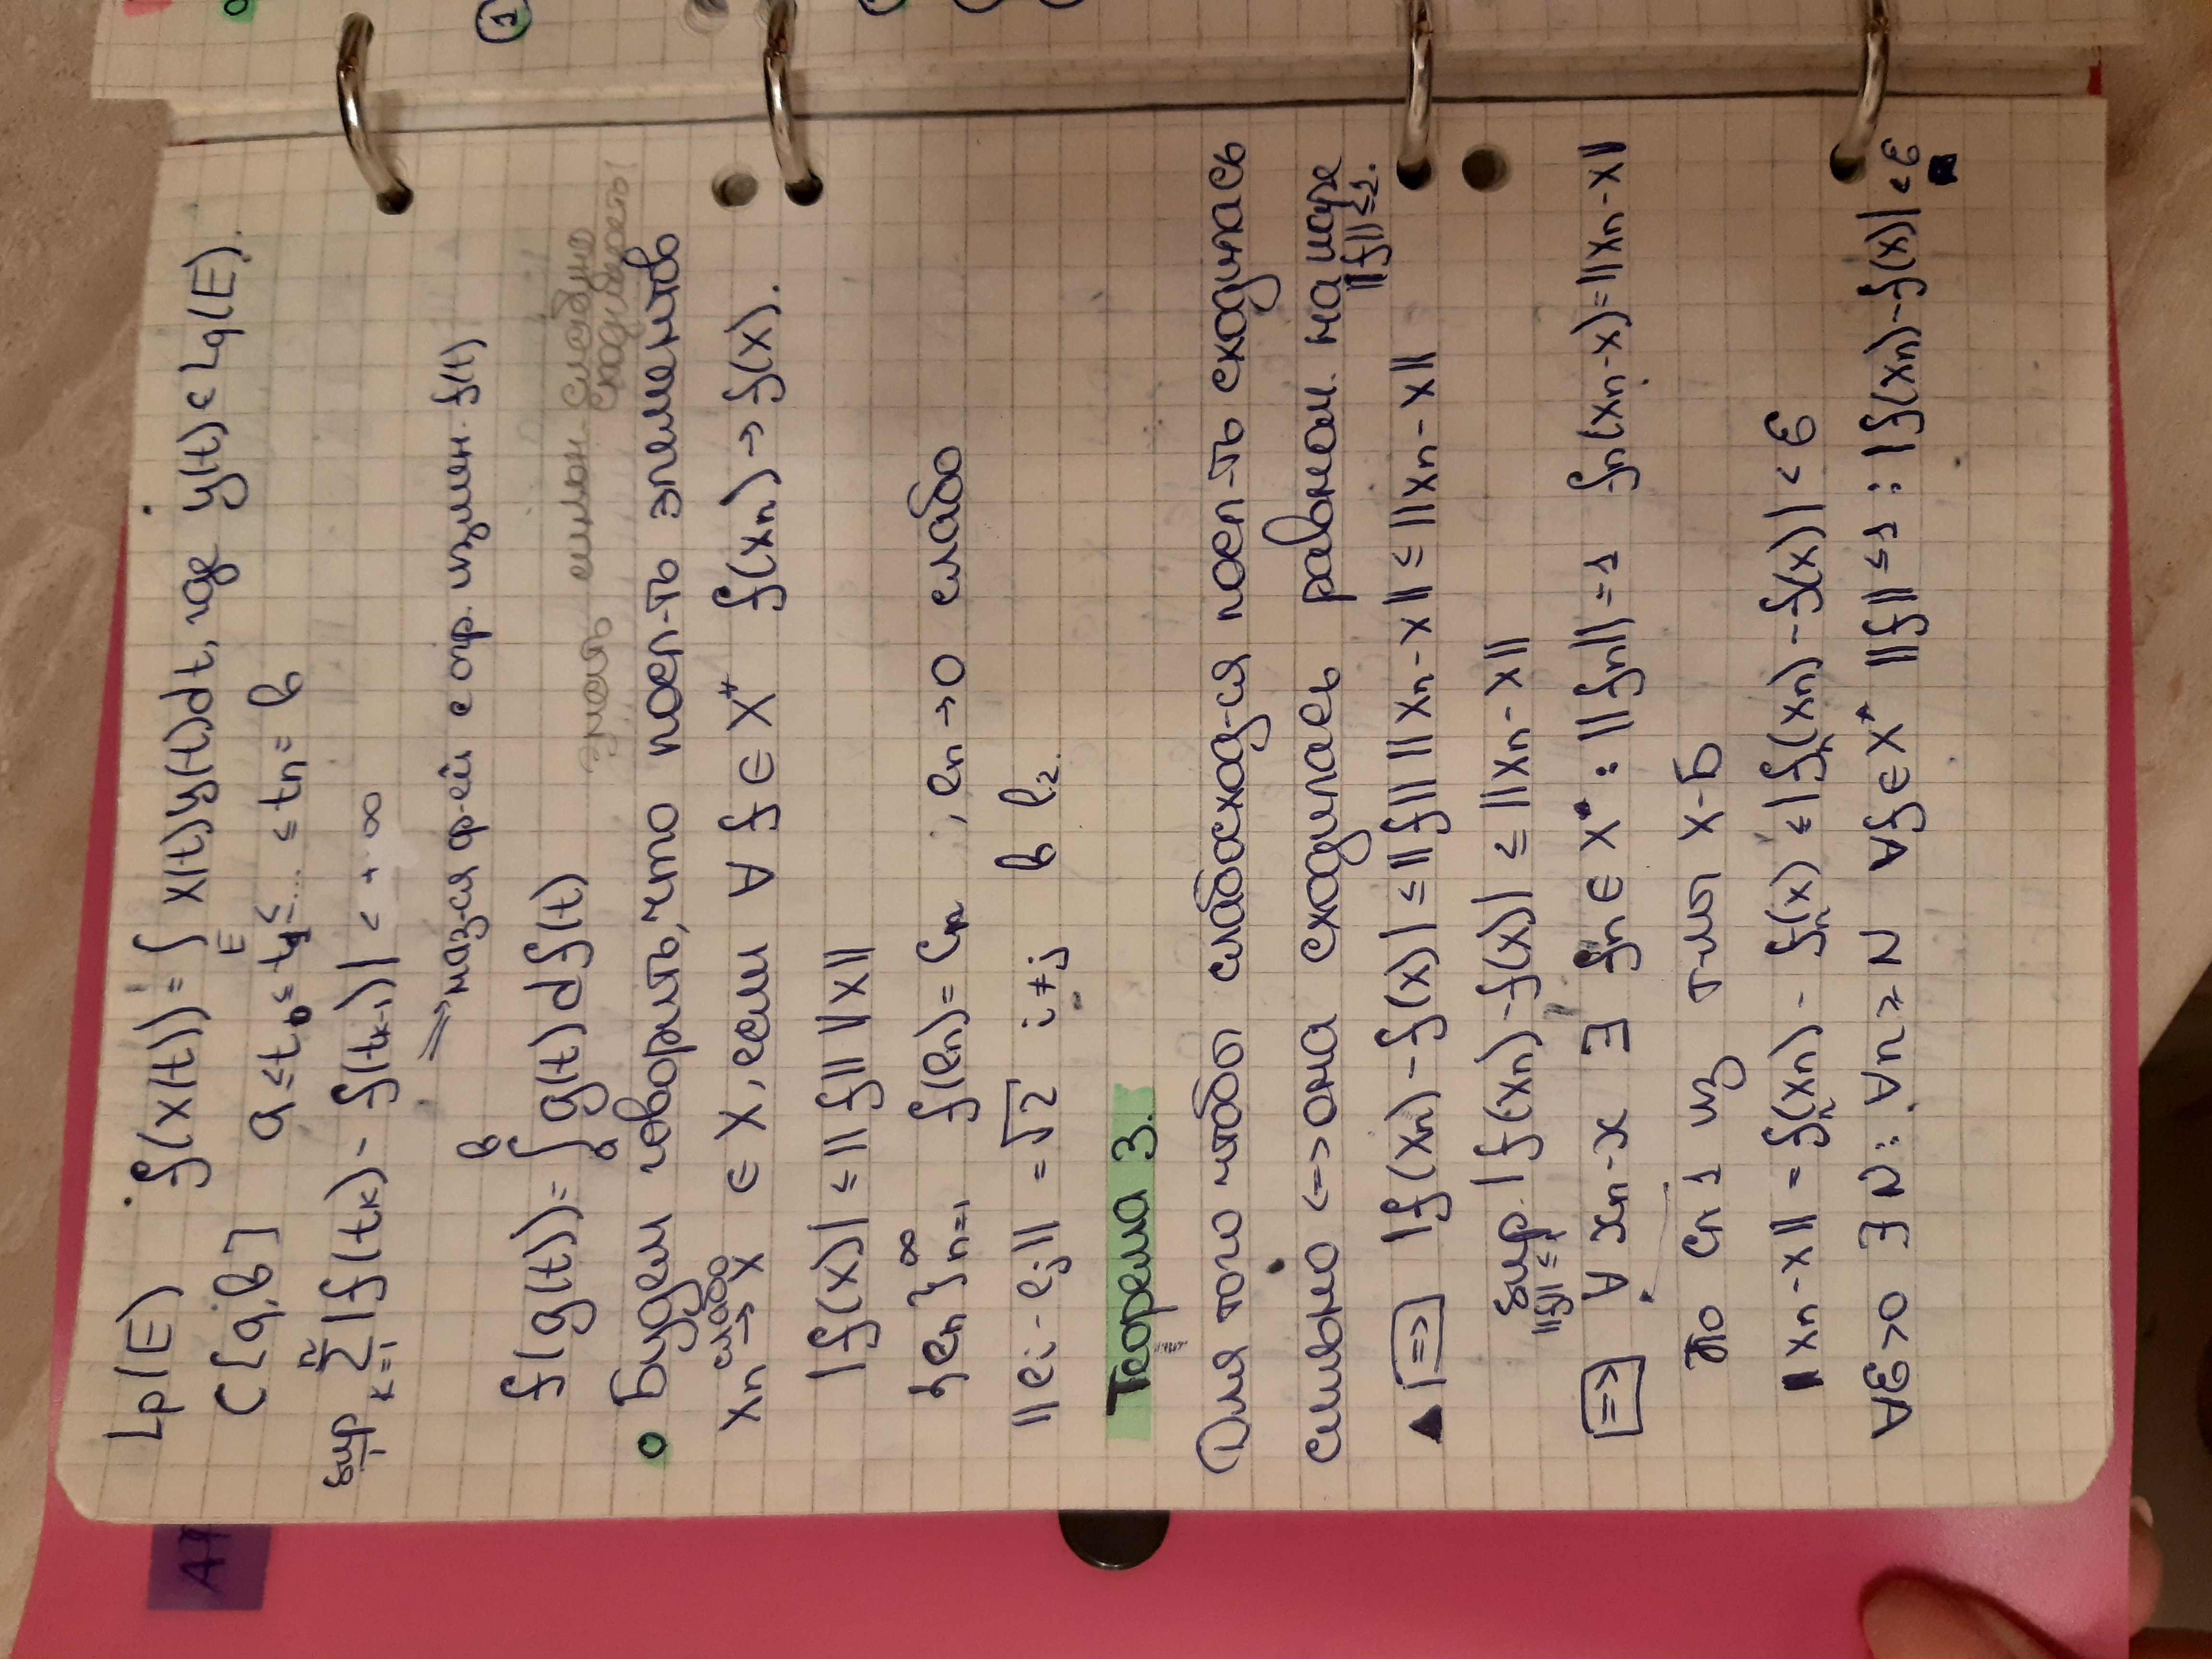 Lp(E) f(x(t)) = ∫_E x(t)y(t)dt, где y(t) ∈ Lq(E).
C[a,b] a ≤ t₀ ≤ t₁ ≤ ... ≤ tn = b
sup Σ_{k=1}^{n} |f(tk) - f(tk-1)| < +∞
⟹ наз-ся ф-ей с огр. измен. f(t)
f(g(t)) = ∫_a^b g(t)df(t)
знать сильн. слабую сходимость!
Будем говорить, что посл-ть элементов
xn слабо → x ∈ X, если ∀ f ∈ X* f(xn) → f(x).
|f(x)| ≤ ||f|| ||x||
{en}_{n=1}^∞ f(en) = Cn ; en → 0 слабо
||ei - ej|| = √2 i ≠ j в l₂.
Теорема 3.
Для того чтобы слабосход-ся посл-ть сходилась
сильно <=> она сходилась равном. на шаре
||f|| ≤ 1.
▲ |=>| |f(xn) - f(x)| ≤ ||f|| ||xn - x|| ≤ ||xn - x||
sup_{||f|| ≤ 1} |f(xn) - f(x)| ≤ ||xn - x||
|=>| ∀ xn - x ∃ fn ∈ X* : ||fn|| = 1 fn(xn - x) = ||xn - x||
По сл 1 из т-мы Х-Б
||xn - x|| = fn(xn) - fn(x) ≤ |fn(xn) - fn(x)| < ε
∀ε > 0 ∃ N : ∀n ≥ N ∀f ∈ X* ||f|| ≤ 1 : |f(xn) - f(x)| < ε